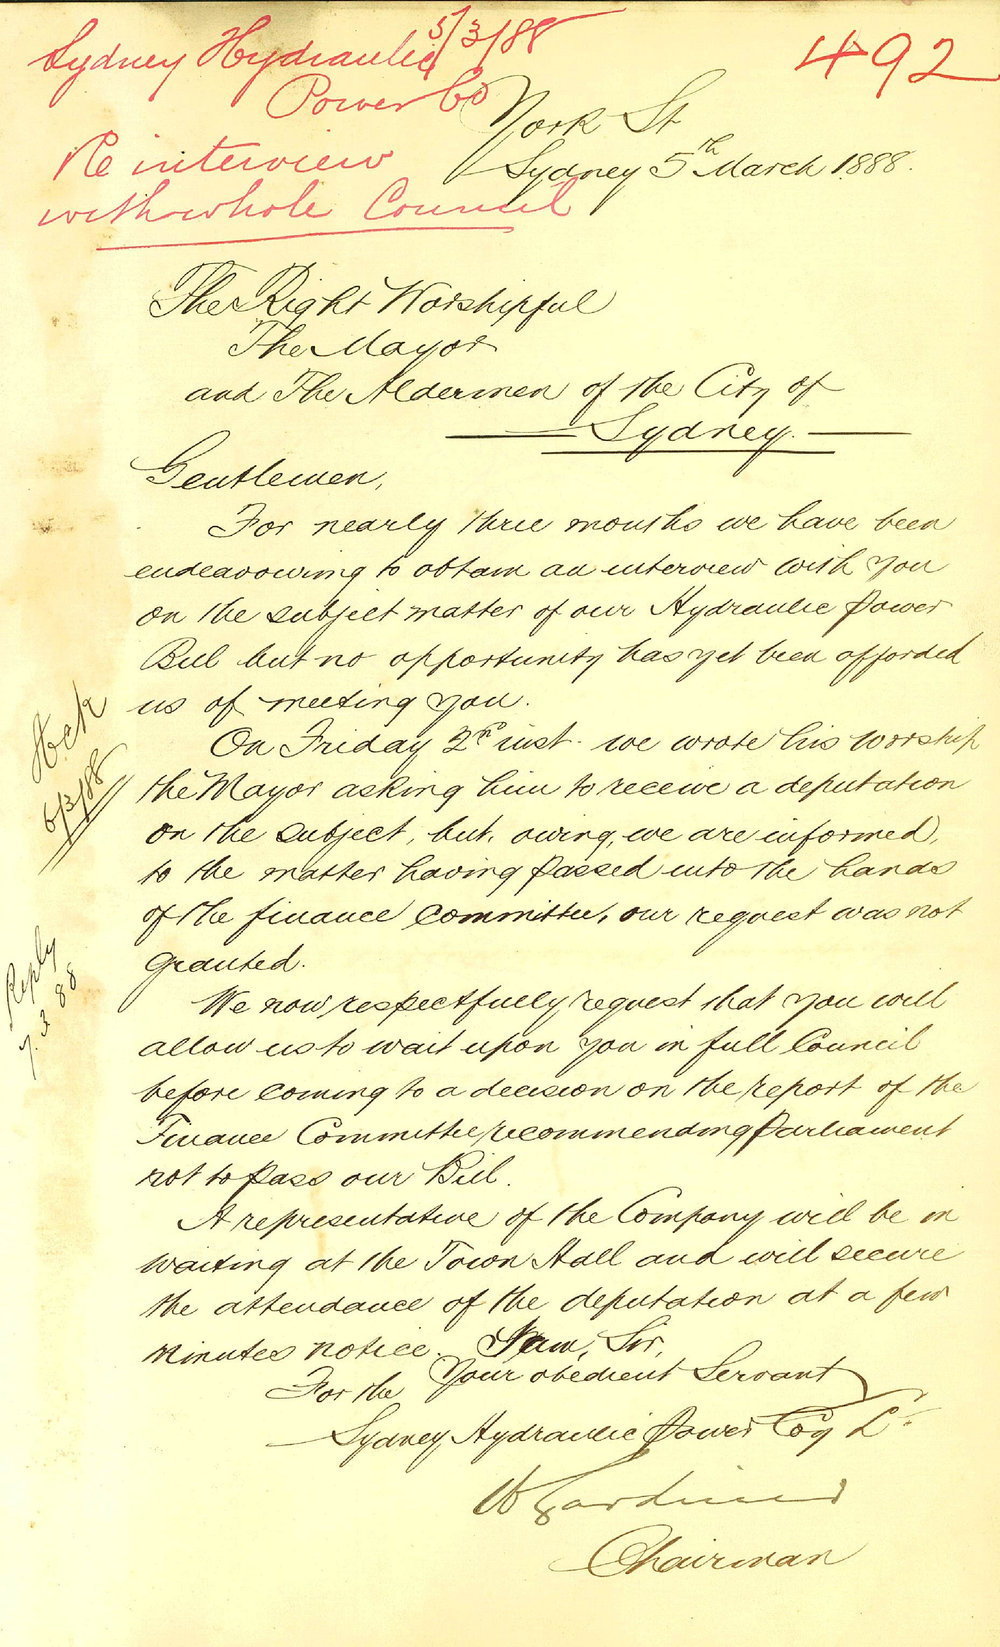 5/3/88
Sydney Hydraulic
Power Co
Re interview
with whole Council
492
York St
Sydney 5th March 1888.
The Right Worshipful
The Mayor
and The Aldermen of the City of
Sydney.
Gentlemen,
For nearly three months we have been
endeavouring to obtain an interview with you
on the subject matter of our Hydraulic Power
Bill but no opportunity has yet been afforded
us of meeting you.
On Friday 2nd inst. we wrote his worship
the Mayor asking him to receive a deputation
on the subject, but, owing, we are informed,
to the matter having passed into the hands
of the finance committee, our request was not
granted.
We now respectfully request that you will
allow us to wait upon you in full Council
before coming to a decision on the report of the
Finance Committee recommending Parliament
not to pass our Bill.
A representative of the Company will be in
waiting at the Town Hall and will secure
the attendance of the deputation at a few
minutes notice. I am, Sir,
Your obedient Servant
For the
Sydney Hydraulic Power Coy Ld.
W Gardiner
Chairman
Ack
6/3/88
Reply
7.3.88